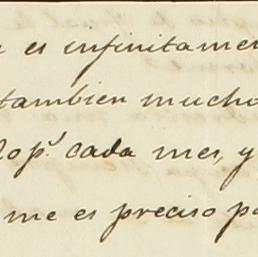 es infinitamen
tambien mucho
cada mes, y
me es preciso pa